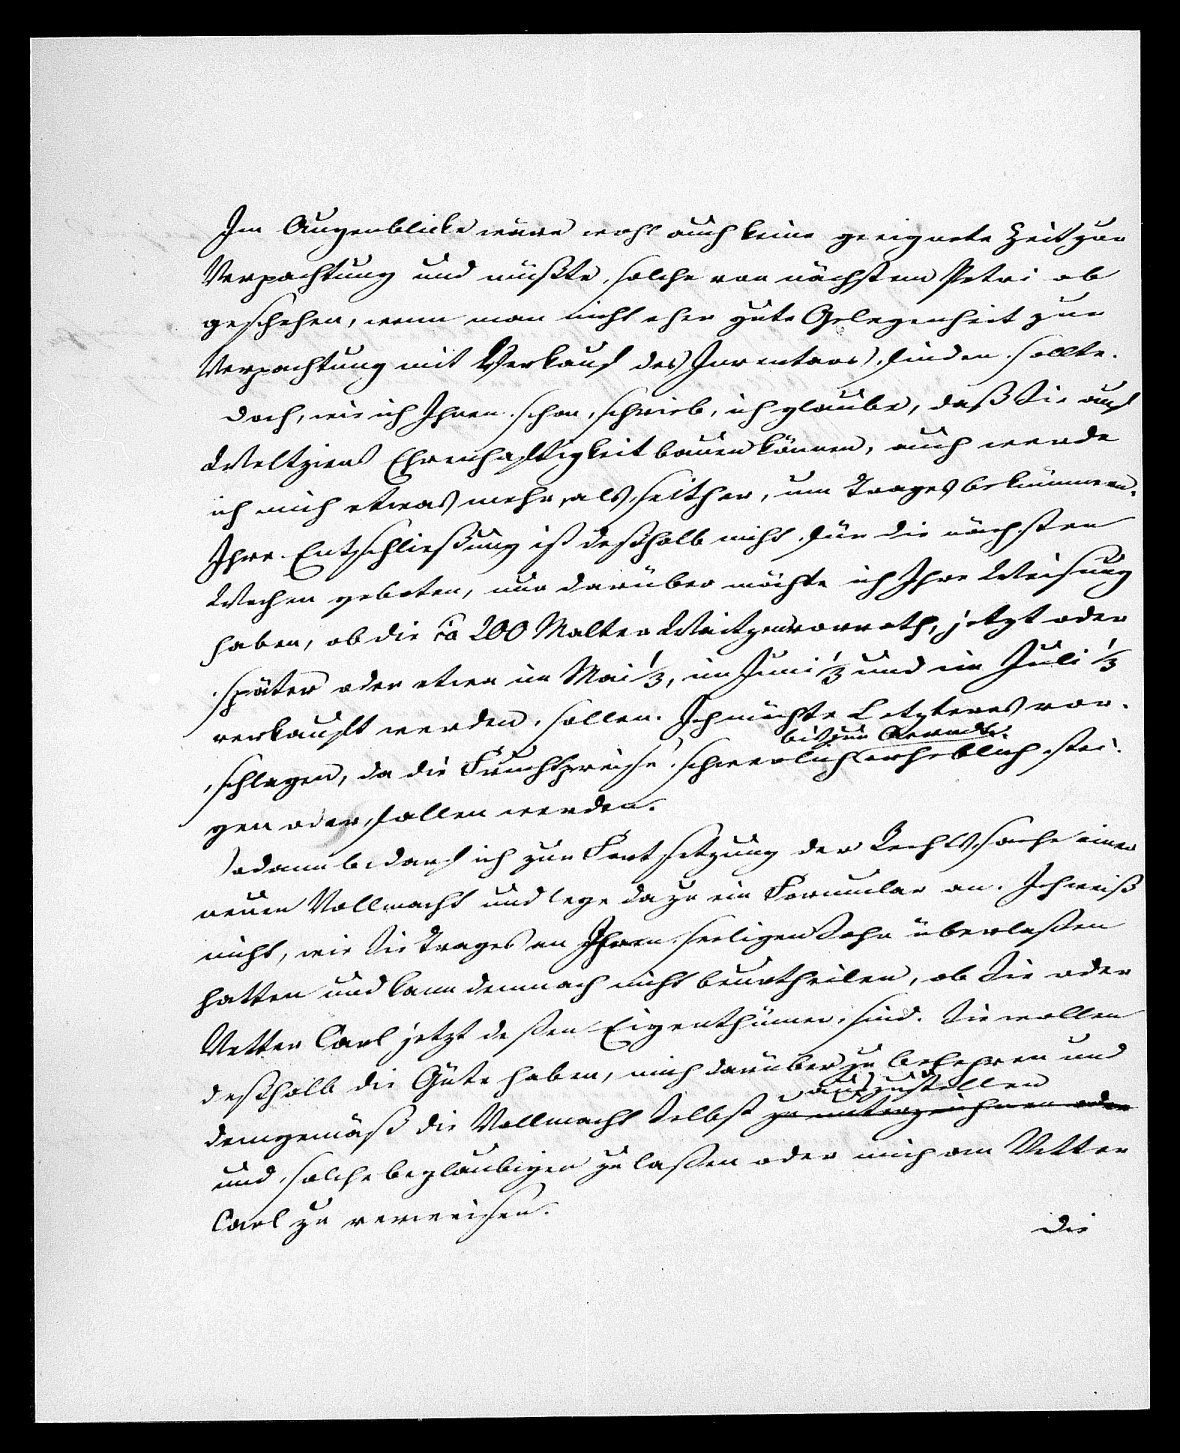 Im Augenblicke wäre wohl auch keine geeignete Zeit zur
Verpachtung und müßte solche von nächstem Petri ab
geschehen, wenn man nicht eher gute Gelegenheit zur
Verpachtung mit Verkauf des Inventars finden sollte.
Doch, wie ich Ihnen schon schrieb, ich glaube, daß Sie auf
Weltziens Ehrenhaftigkeit bauen können, auch werde
ich mich etwas mehr, als seither, um Trages bekümmern.
Ihre Entschließung ist deßhalb nicht für die nächsten
Wochen geboten, nur darüber möchte ich Ihre Weisung
haben, ob die ca 200 Malter Waitzenvorrath, jetzt oder
später oder etwa im Mai 1/3, im Juni 1/3 und im Juli 1/3
verkauft werden sollen. Ich möchte Letzteres vor-
bis zur Aerndte
schlagen, da die Fruchtpreise schwerlich erheblich stei-
gen oder fallen werden.
Sodann bedarf ich zur Fortsetzung der Rechtssache einer
neuen Vollmacht und lege dazu ein Formular an. Ich weiß
nicht, wie Sie Trages an Ihren seeligen Sohn überlaßen
hatten und kann demnach nicht beurtheilen, ob Sie oder
Vetter Carl jetzt deßen Eigenthümer sind. Sie wollen
deßhalb die Güte haben, mich darüber zu belehren und
auszustellen
demgemäß die Vollmacht Selbst zu unterzeichnen oder
und solche beglaubigen zu laßen oder mich an Vetter
Carl zu verweisen.
Die